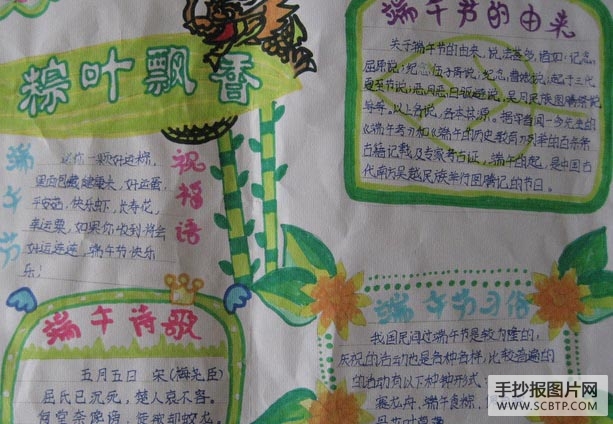 粽叶飘香
端午节
祝福语
送你一颗好运粽,
平安菇,快乐虾,长寿花,
幸运粟,如果你收到将会
好运连连,端午节快
乐!
端午节的由来
关于端午节的由来,说法甚多,诸如:纪念
屈原说;纪念伍子胥说;纪念曹娥说;起于三代
夏至节说;恶月恶日驱避说,吴月民族图腾祭说
等等。以上各说,各本其源。据学者闻一多先生的
《端午考》和《端午的历史教育》列举的百余条
古籍记载及专家考古证,端午的起,是中国古
代南方吴越民族举行图腾记的节日。
端午诗歌
五月五日 宋(梅尧臣)
屈氏已沉死,楚人哀不容。
何尝奈谗谤,徒欲却蛟龙。
端午节习俗
我国民间过端午节是较为隆的,
庆祝的活动也是各种各样,比较普遍的
的活动有以下种种形式:
赛龙舟、端午食粽,
手抄报图片网
WWW.SCBTP.COM